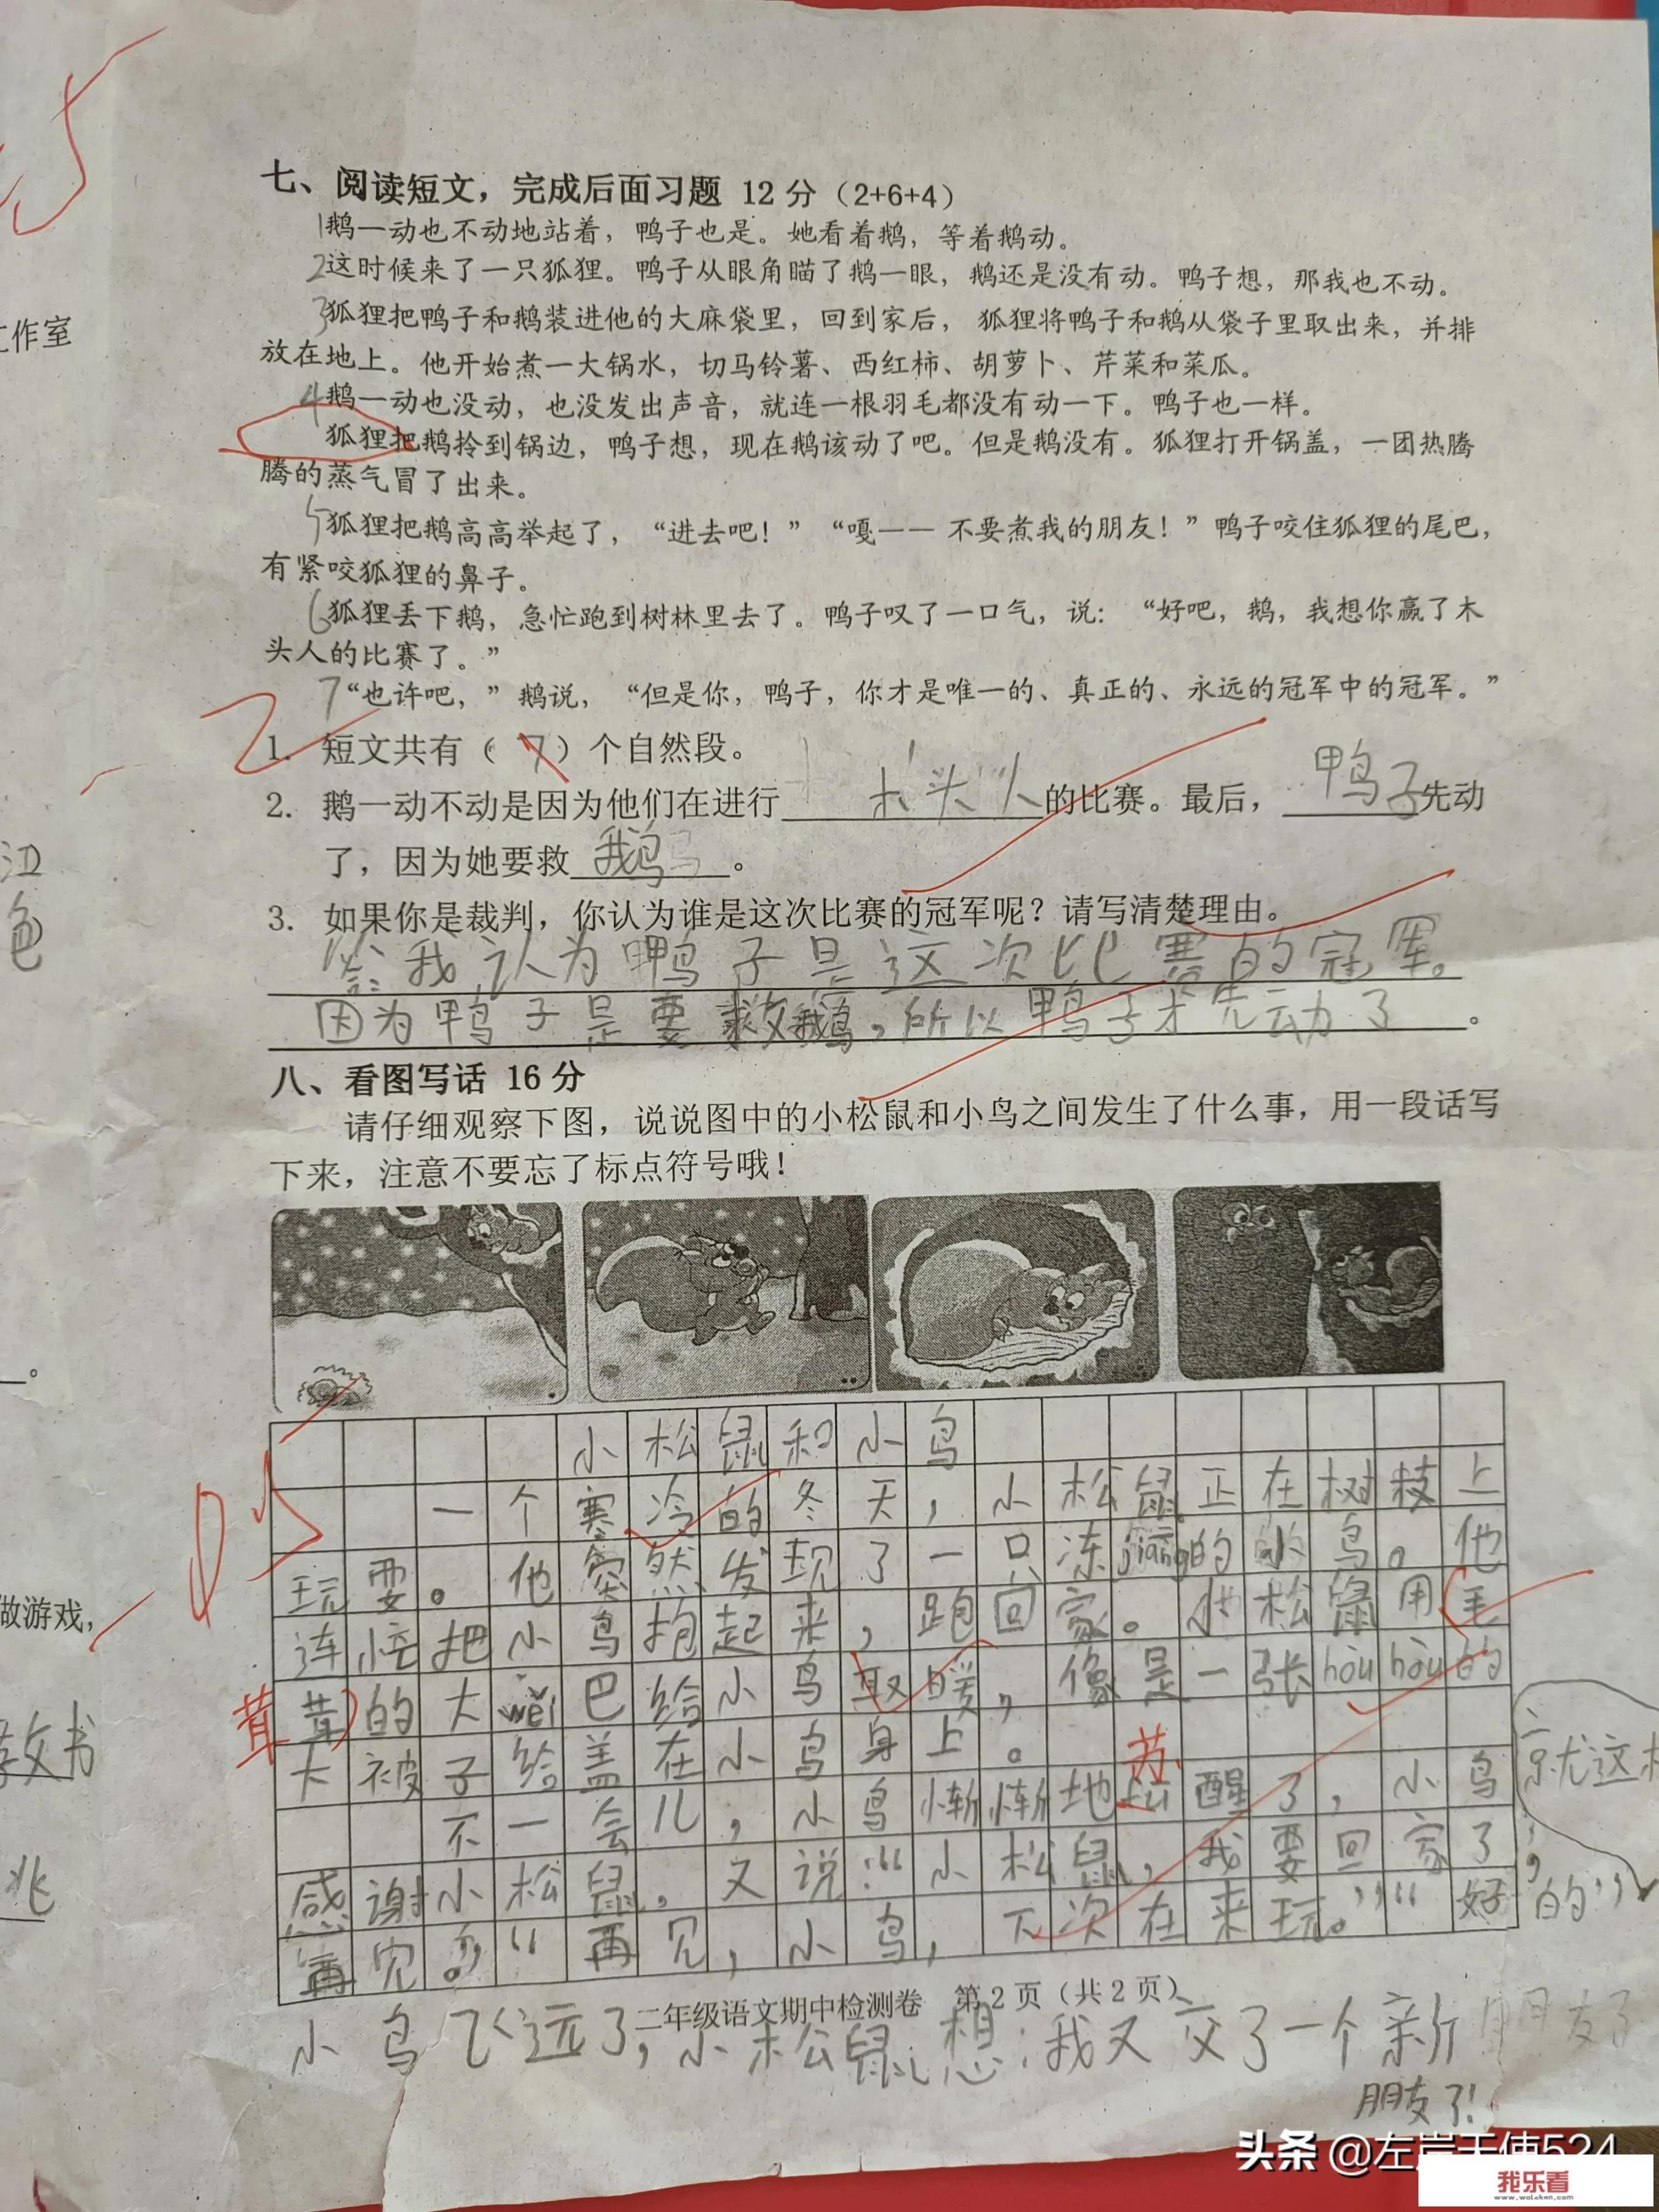 工作室
七、阅读短文，完成后面习题 12 分（2+6+4）
1鹅一动也不动地站着，鸭子也是。她看着鹅，等着鹅动。
2这时候来了一只狐狸。鸭子从眼角瞄了鹅一眼，鹅还是没有动。鸭子想，那我也不动。
3狐狸把鸭子和鹅装进他的大麻袋里，回到家后， 狐狸将鸭子和鹅从袋子里取出来，并排
放在地上。他开始煮一大锅水，切马铃薯、西红柿、胡萝卜、芹菜和菜瓜。
4鹅一动也没动，也没发出声音，就连一根羽毛都没有动一下。鸭子也一样。
狐狸把鹅拎到锅边，鸭子想，现在鹅该动了吧。但是鹅没有。狐狸打开锅盖，一团热腾
腾的蒸气冒了出来。
5狐狸把鹅高高举起了，“进去吧！”“嘎—— 不要煮我的朋友！”鸭子咬住狐狸的尾巴，
有紧咬狐狸的鼻子。
6狐狸丢下鹅，急忙跑到树林里去了。鸭子叹了一口气，说：“好吧，鹅，我想你赢了木
头人的比赛了。”
7“也许吧，”鹅说，“但是你，鸭子，你才是唯一的、真正的、永远的冠军中的冠军。”
2
1. 短文共有（ 7 ）个自然段。
2. 鹅一动不动是因为他们在进行 木头人 的比赛。最后， 鸭子 先动
了，因为她要救 鹅 。
3. 如果你是裁判，你认为谁是这次比赛的冠军呢？请写清楚理由。
答：我认为鸭子是这次比赛的冠军。
因为鸭子是要救鹅，所以鸭子才先动了 。
八、看图写话 16 分
请仔细观察下图，说说图中的小松鼠和小鸟之间发生了什么事，用一段话写
下来，注意不要忘了标点符号哦！
小松鼠和小鸟
一个寒冷的冬天，小松鼠正在树枝上
玩耍。他突然发现了一只冻jiāng的小鸟。他
连忙把小鸟抱起来，跑回家。小松鼠用毛
茸茸的大wěi巴给小鸟取暖，像是一张hòu hòu的
大被子给盖在小鸟身上。
苏
不一会儿，小鸟渐渐地sū醒了，小鸟
感谢小松鼠。又说：“小松鼠，我要回家了，
再见。”“再见，小鸟，下次在来玩。”“好的”
就这
做游戏，
二年级语文期中检测卷 第 2 页（共 2 页）
小鸟飞远了，小松鼠想：我又交了一个新朋友了
朋友了！
头条 @左岸天使524
我乐看
www.wolaken.com